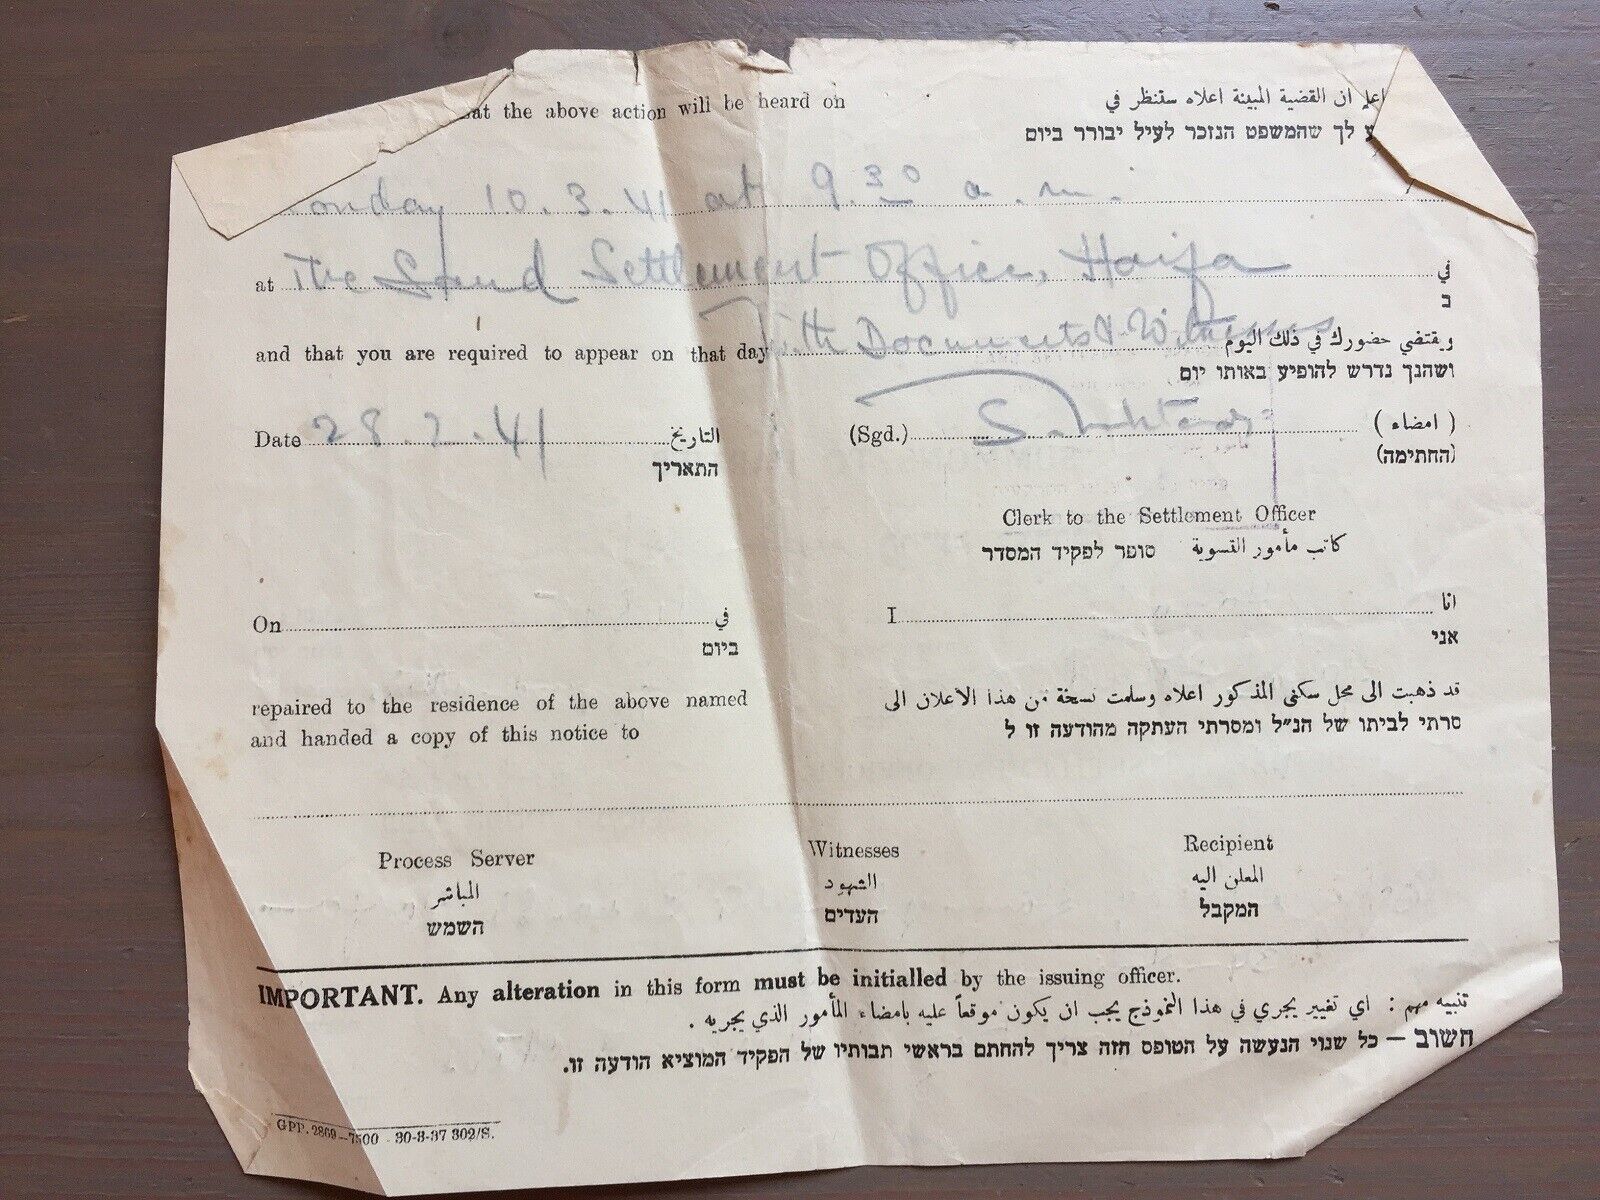 at the above action will be heard on
اعلا ان القضية المبينة اعلاه ستنظر في
ע לך שהמשפט הנזכר לעיל יבורר ביום
onday 10.3.41 at 9.30 a.m.
at The Land Settlement Office, Haifa
في
ב
and that you are required to appear on that day with Documents & Witnesses
ويقتضي حضورك في ذلك اليوم
ושהנך נדרש להופיע באותו יום
Date 28.2.41 التاريخ
התאריך
(Sgd.) (امضاء)
(החתימה)
Clerk to the Settlement Officer
كاتب مأمور التسوية סופר לפקיד המסדר
On في
ביום
I انا
אני
repaired to the residence of the above named
and handed a copy of this notice to
قد ذهبت الى محل سكنى المذكور اعلاه وسلمت نسخة من هذا الاعلان الى
סרתי לביתו של הנ״ל ומסרתי העתקה מהודעה זו ל
Process Server
المباشر
השמש
Witnesses
الشهود
העדים
Recipient
المعلن اليه
המקבל
IMPORTANT. Any alteration in this form must be initialled by the issuing officer.
تنبيه مهم : اي تغيير يجري في هذا النموذج يجب ان يكون موقعاً عليه بامضاء المأمور الذي يجريه .
חשוב – כל שנוי הנעשה על הטופס הזה צריך להחתם בראשי תבותיו של הפקיד המוציא הודעה זו.
GPP. 2869—7500 30-8-37 302/S.